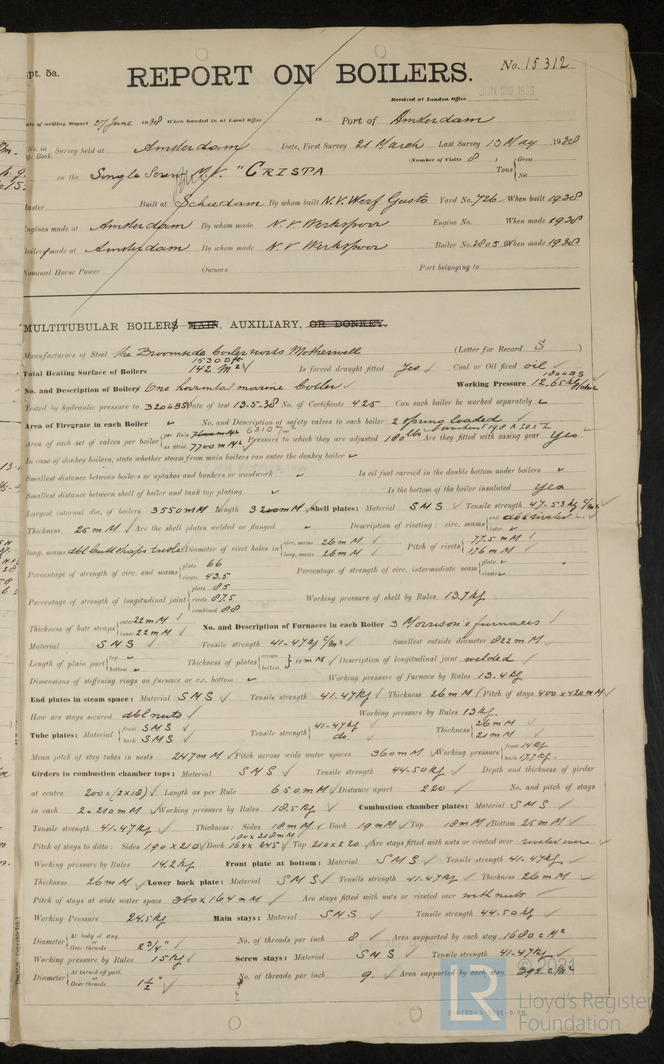 pt. 5a.
REPORT ON BOILERS.
No. 15312
Received at London Office JUN 29 1938
Date of writing Report 27 June 1938 When handed in at Local Office 19 Port of Amsterdam
No. in Reg. Book. Survey held at Amsterdam Date, First Survey 21 March Last Survey 13 May 1938
(Number of Visits 8)
on the Single Screw M.V. "CRISPA" Tons { Gross Net
Master Built at Schiedam By whom built N.V. Werf Gusto Yard No. 726 When built 1938
Engines made at Amsterdam By whom made N.V. Werkspoor Engine No. When made 1938
Boilers made at Amsterdam By whom made N.V. Werkspoor Boiler No. 2805 When made 1938
Nominal Horse Power Owners Port belonging to
MULTITUBULAR BOILERS MAIN, AUXILIARY, OR DONKEY.
Manufacturers of Steel the Broomside boilerworks Motherwell (Letter for Record S )
Total Heating Surface of Boilers 1530 142 M² Is forced draught fitted Yes Coal or Oil fired oil
No. and Description of Boilers One horizontal marine boiler Working Pressure 180 LBS 12.65 kg/
Tested by hydraulic pressure to 320 LBS Date of test 13-5-38 No. of Certificate 425 Can each boiler be worked separately
Area of Firegrate in each Boiler No. and Description of safety valves to each boiler 2 spring loaded
Area of each set of valves per boiler { per Rule 6310 as fitted 7700 mM² Pressure to which they are adjusted 180 lbs Are they fitted with easing gear Yes
In case of donkey boilers, state whether steam from main boilers can enter the donkey boiler
Smallest distance between boilers or uptakes and bunkers or woodwork Is oil fuel carried in the double bottom under boilers
Smallest distance between shell of boiler and tank top plating Is the bottom of the boiler insulated Yes
Largest internal dia. of boilers 3550 mM Length Shell plates: Material S M S Tensile strength 47-53 kg
Thickness 25 m M Are the shell plates welded or flanged Description of riveting: circ. seams { end dbl riveted inter.
long. seams dbl buttstraps treble Diameter of rivet holes in { circ. seams 26 m M long. seams 26 m M Pitch of rivets { 77.5 m M 176 m M
Percentage of strength of circ. end seams { plate 66 rivets 43.5 Percentage of strength of circ. intermediate seam { plate rivets
Percentage of strength of longitudinal joint { plate 85 rivets 87.5 combined 88 Working pressure of shell by Rules 13.7 kg
Thickness of butt straps { outer 22 m M inner 22 m M No. and Description of Furnaces in each Boiler 3 Morrison's furnaces
Material S M S Tensile strength 41-47 kg Smallest outside diameter 822 m M
Length of plain part { top bottom Thickness of plates { crown bottom } 11 m M Description of longitudinal joint welded
Dimensions of stiffening rings on furnace or c.c. bottom Working pressure of furnace by Rules 13.4 kg
End plates in steam space: Material S M S Tensile strength 41-47 kg Thickness 26 m M Pitch of stays 400 x 420 m M
How are stays secured dbl nuts Working pressure by Rules 13 kg
Tube plates: Material { front S M S back S M S Tensile strength { 41-47 kg do. Thickness { 26 m M 21 m M
Mean pitch of stay tubes in nests 247 m M Pitch across wide water spaces 360 m M Working pressure { front 14 kg back 17.7 kg
Girders to combustion chamber tops: Material S M S Tensile strength 44-50 kg Depth and thickness of girder
at centre 200 x (2x18) Length as per Rule 650 m M Distance apart 220 No. and pitch of stays
in each 2-210 m M Working pressure by Rules 18.5 kg Combustion chamber plates: Material S M S
Tensile strength 41-47 kg Thickness: Sides 18 m M Back 19 m M Top 18 m M Bottom 25 m M
Pitch of stays to ditto: Sides 190 x 210 Back 164 x 245 Top 210 x 220 Are stays fitted with nuts or riveted over riveted over
Working pressure by Rules 14.2 kg Front plate at bottom: Material S M S Tensile strength 41-47 kg
Thickness 26 m M Lower back plate: Material S M S Tensile strength 41-47 kg Thickness 26 m M
Pitch of stays at wide water space 360 x 164 m M Are stays fitted with nuts or riveted over with nuts
Working Pressure 24.5 kg Main stays: Material S M S Tensile strength 44-50 kg
Diameter { At body of stay, or Over threads 2 3/4" No. of threads per inch 8 Area supported by each stay 1680 c M²
Working pressure by Rules 15 kg Screw stays: Material S M S Tensile strength 41-47 kg
Diameter { At turned off part, or Over threads 1 1/2" No. of threads per inch 9. Area supported by each stay 392 c M²
© 2021
LR
Lloyd's Register
Foundation